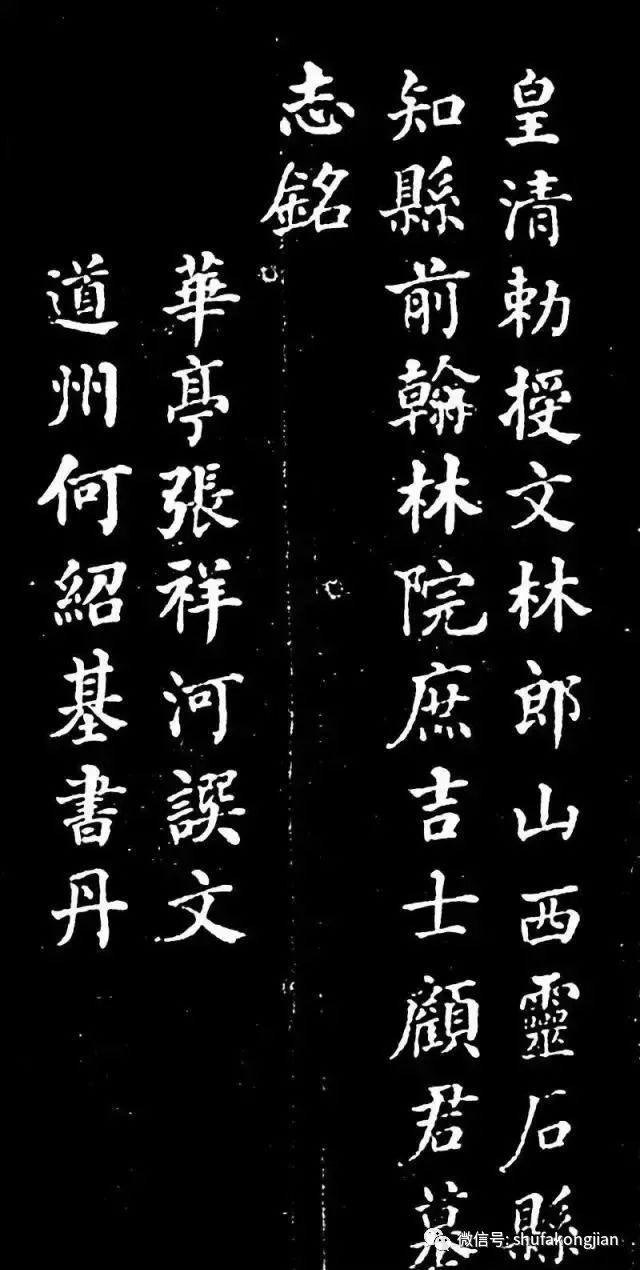 皇清勅授文林郎山西靈石縣
知縣前翰林院庶吉士顧君墓
志銘
華亭張祥河譔文
道州何紹基書丹
微信号: shufakongjian